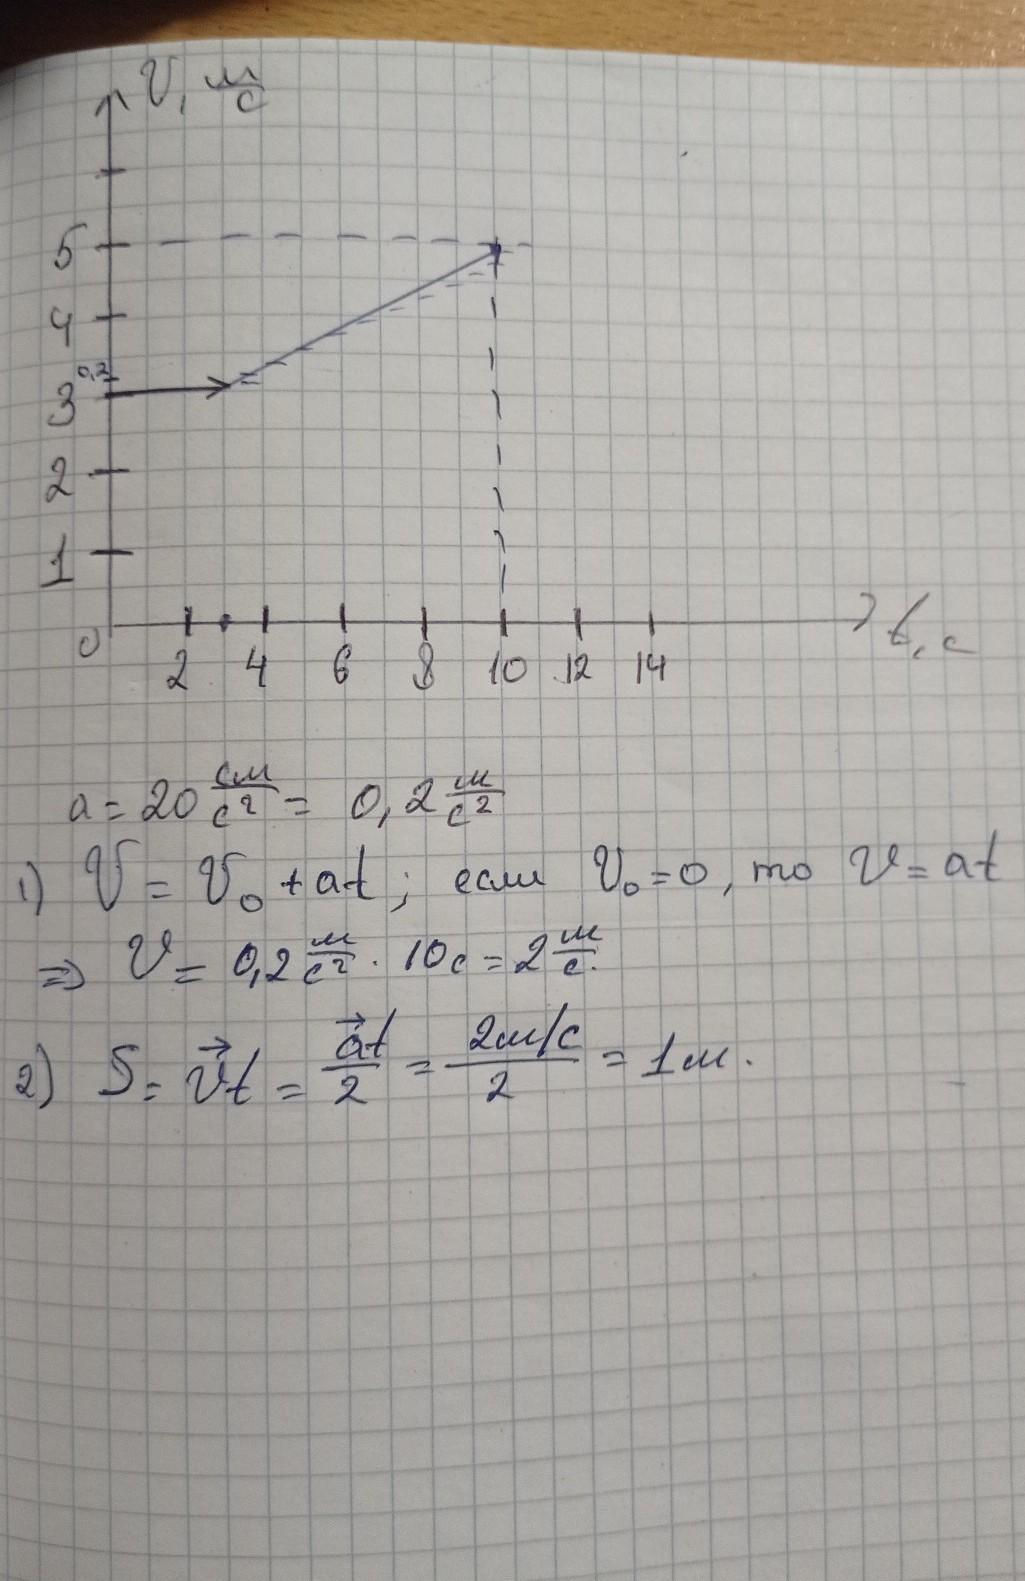 V, м/с
5
4
0,2
3
2
1
0
2 4 6 8 10 12 14
t, с
a = 20 см/с² = 0,2 м/с²
1) V = V₀ + at ; если V₀ = 0, то V = at
⇒ V = 0,2 м/с² · 10с = 2 м/с.
2) S = v⃗t = a⃗t/2 = 2м/с/2 = 1м.